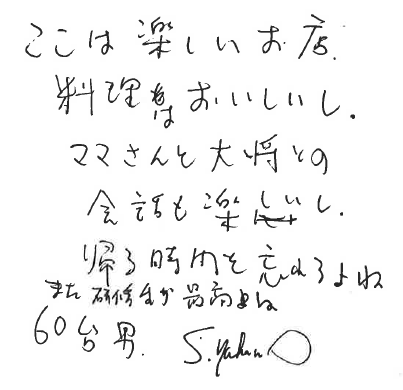 ここは楽しいお店.
料理はおいしいし.
ママさんと大将との
会話も楽しいし.
帰る時間を忘れるよね
また研修生が最高よね
60台男.